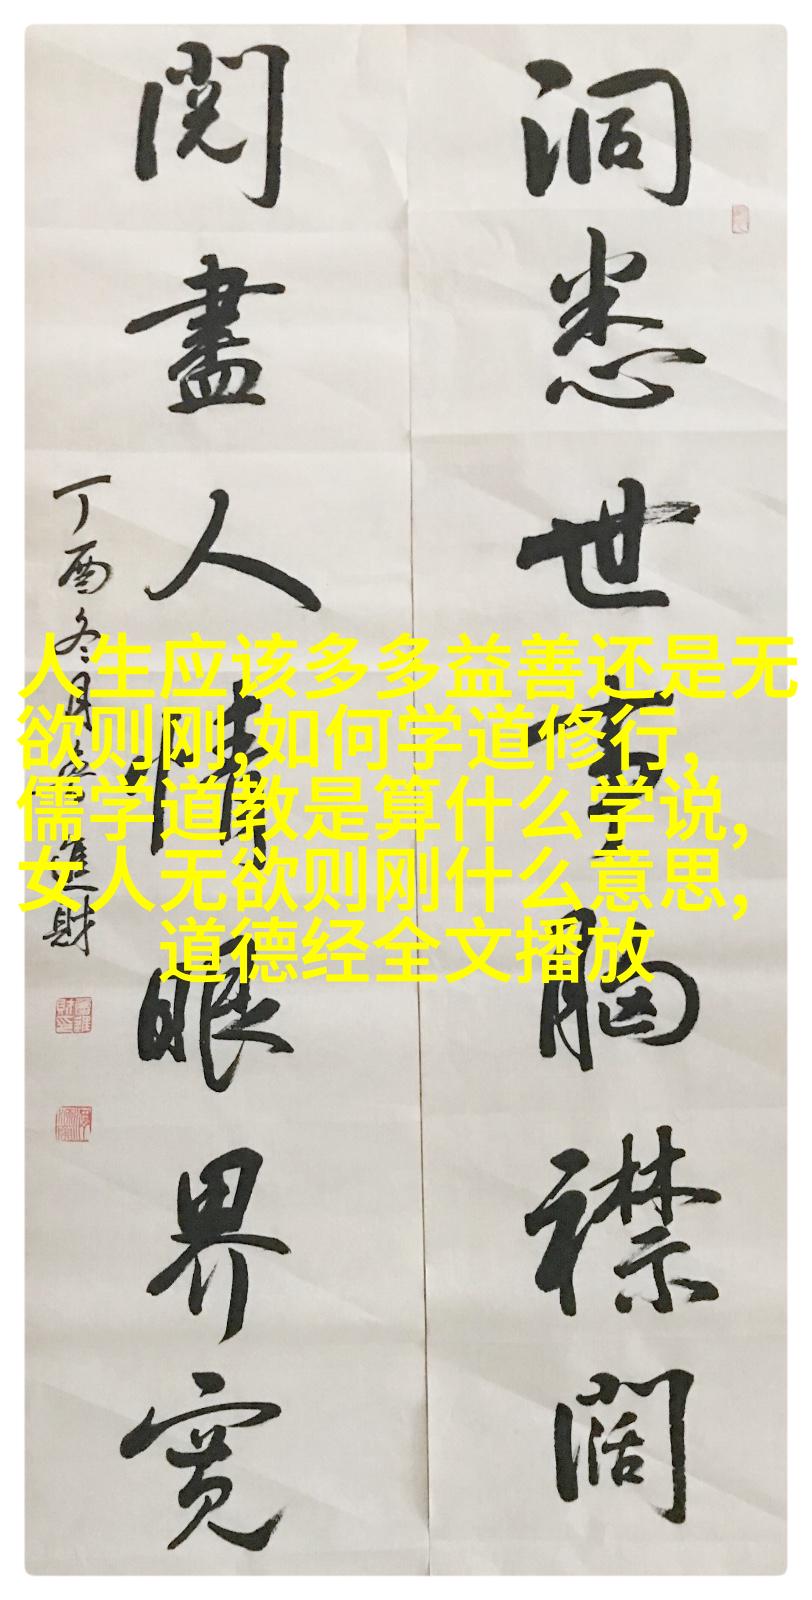 洞悉世事胸襟阔
阅盡人情眼界寛
丁酉冬月 進財
人生应该多多益善还是无
欲则刚,如何学道修行,
儒学道教是算什么学说,
女人无欲则刚什么意思,
道德经全文播放